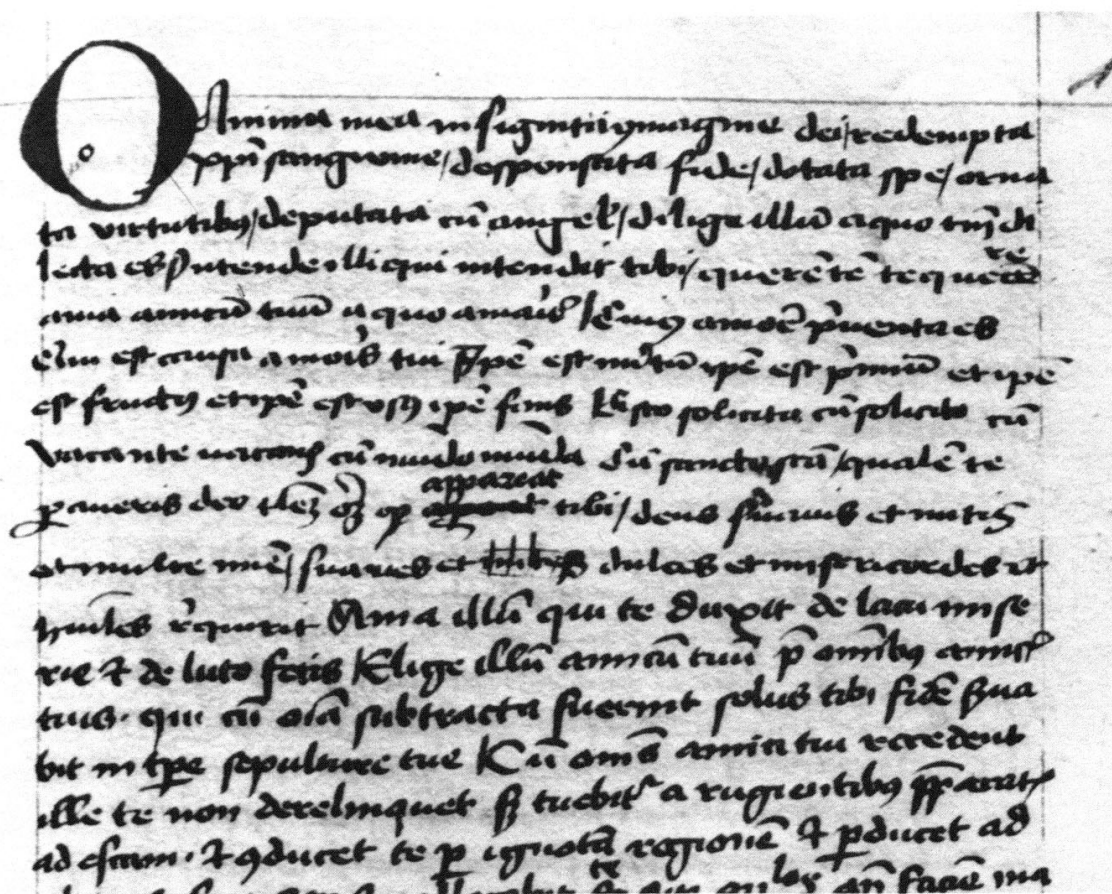 O Anima mea insignita ymagine dei / redempta
xpi sanguine / desponsata fide / dotata spe / orna
ta virtutibus / deputata cū angel / dilige illū a quo tm̄ di
lecta es Intende illi qui intendit tibi / querētē te quere
ama amicū tuū a quo amaris / Cuius amoē p̄venta es
est causa amoris tui ipē est m̄itū ipē est p̄miū et ipē
est fructus et ipē est usus ipē finis Esto solicita cū solicito cū
vacante vacans cū mūdo mūda cū sancto scā / qualē te
paveris deo talē appareat tibi / deus suavis et mitis
et multe mīe / suaves et dulces et misericordes et
hūiles req̄rit Ama illū qui te duxit de lacu mise
rie & de luto fecis Elige illū amicū tuū p̄ omībus amicis
tuis · qui cū oīa subtracta fuerint solus tibi fidē s̄va
bit in tp̄e sepulture tue Cū omēs amici tui recedent
ille te non derelinquet s̄ tuebit̄ a rugientibus p̄parat̄
ad escam · & 9ducet te p ignotā regionē & p̄ducet ad